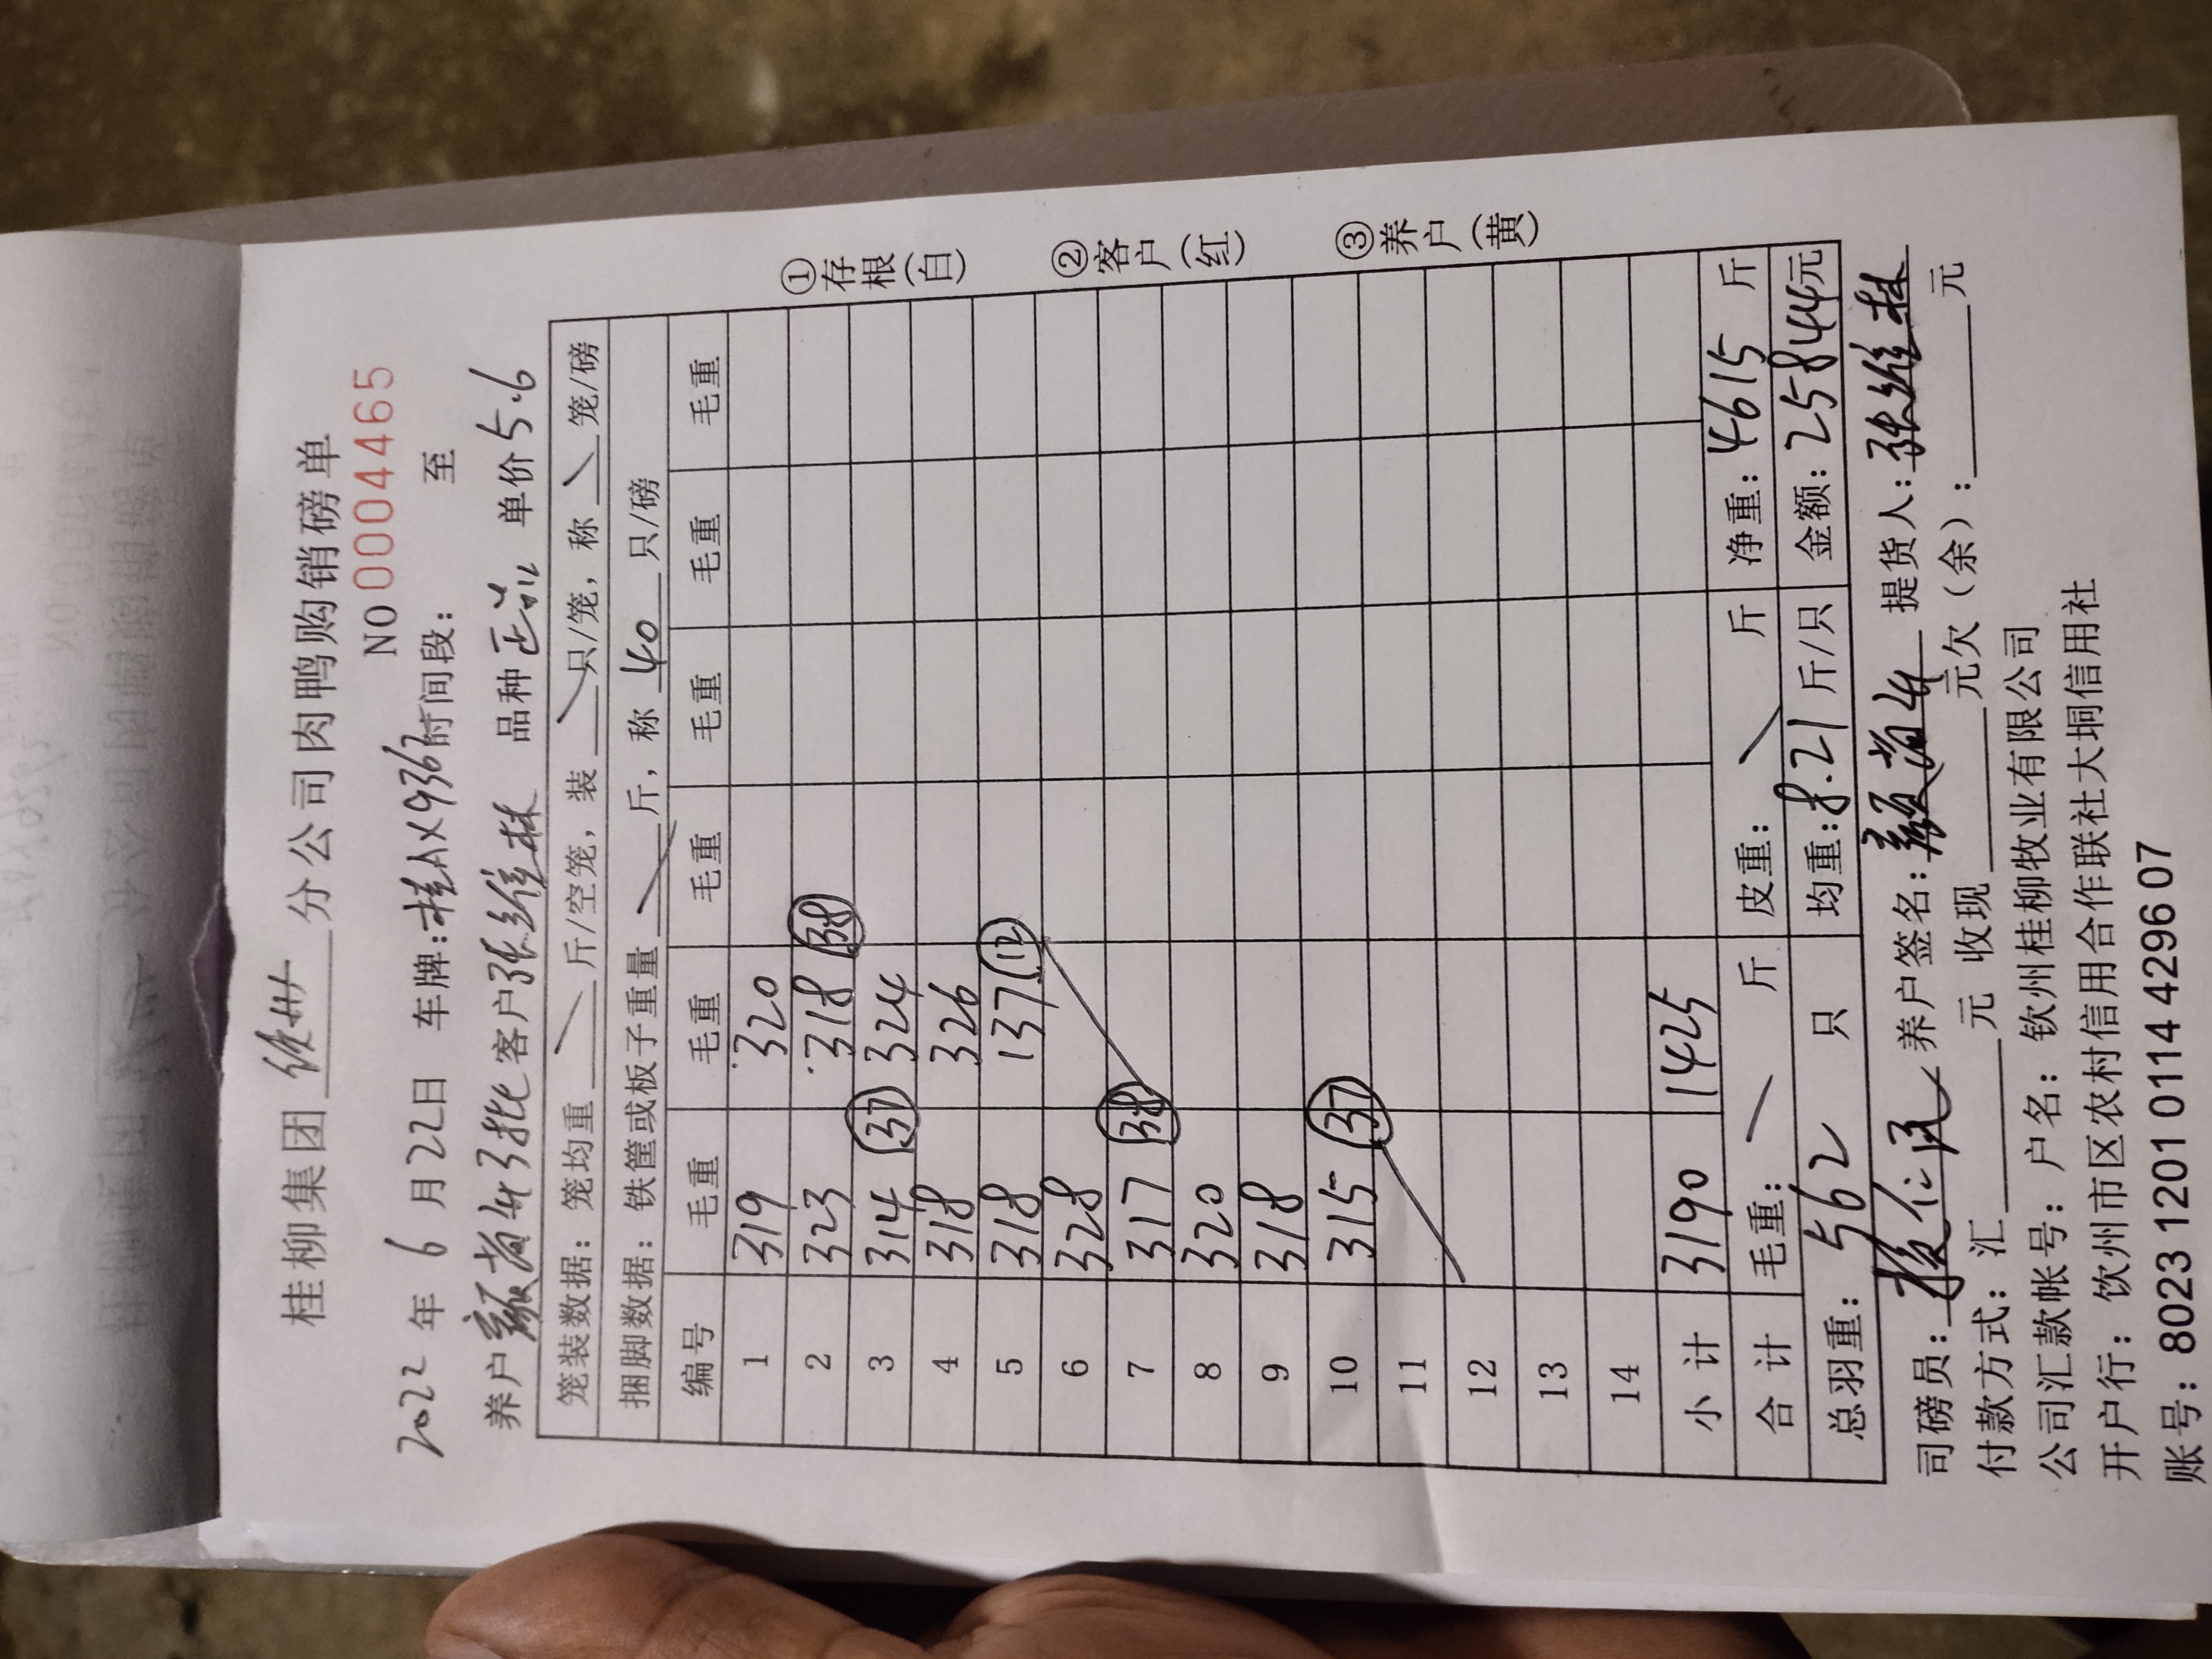 桂柳集团 分公司肉鸭购销磅单
NO 0004465
2022年6月22日 车牌:桂AX9367时间段: 至
养户 3批 客户张维林 品种正品 单价5.6
笼装数据: 笼均重 斤/空笼, 装 只/笼, 称 笼/磅
捆脚数据: 铁筐或板子重量 斤, 称 40 只/磅
编号 毛重 毛重 毛重 毛重 毛重 毛重
1 319 320
2 323 318 38
3 314 37 324
4 318 326
5 318 137 12
6 328
7 317 38
8 320
9 318
10 315 37
11
12
13
14
小计 3190 1425
合计 毛重: 斤 皮重: 斤 净重: 4615 斤
总羽重: 562 只 均重: 8.21 斤/只 金额: 25844元
司磅员: 养户签名: 提货人: 张维林
付款方式: 汇 元 收现 元欠(余): 元
公司汇款帐号: 户名: 钦州桂柳牧业有限公司
开户行: 钦州市区农村信用合作联社大垌信用社
账号: 8023 1201 0114 4296 07
①存根(白)
②客户(红)
③养户(黄)